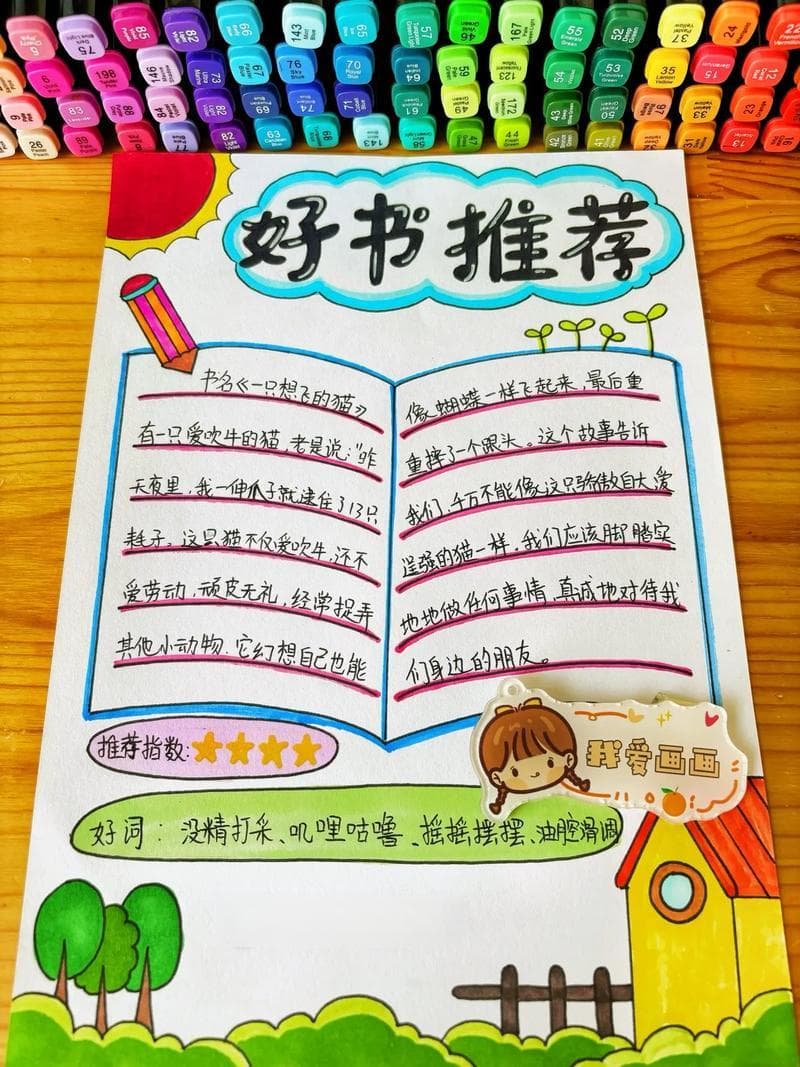 好书推荐
书名《一只想飞的猫》
有一只爱吹牛的猫，老是说："昨
天夜里，我一伸爪子就逮住了13只
耗子。这只猫不仅爱吹牛，还不
爱劳动，顽皮无礼，经常捉弄
其他小动物.它幻想自己也能
像蝴蝶一样飞起来，最后重
重摔了一个跟头。这个故事告诉
我们，千万不能像这只骄傲自大，爱
逞强的猫一样，我们应该脚踏实
地地做任何事情，真诚地对待我
们身边的朋友。
推荐指数:
我爱画画
好词：没精打采、叽哩咕噜、摇摇摆摆、油腔滑调